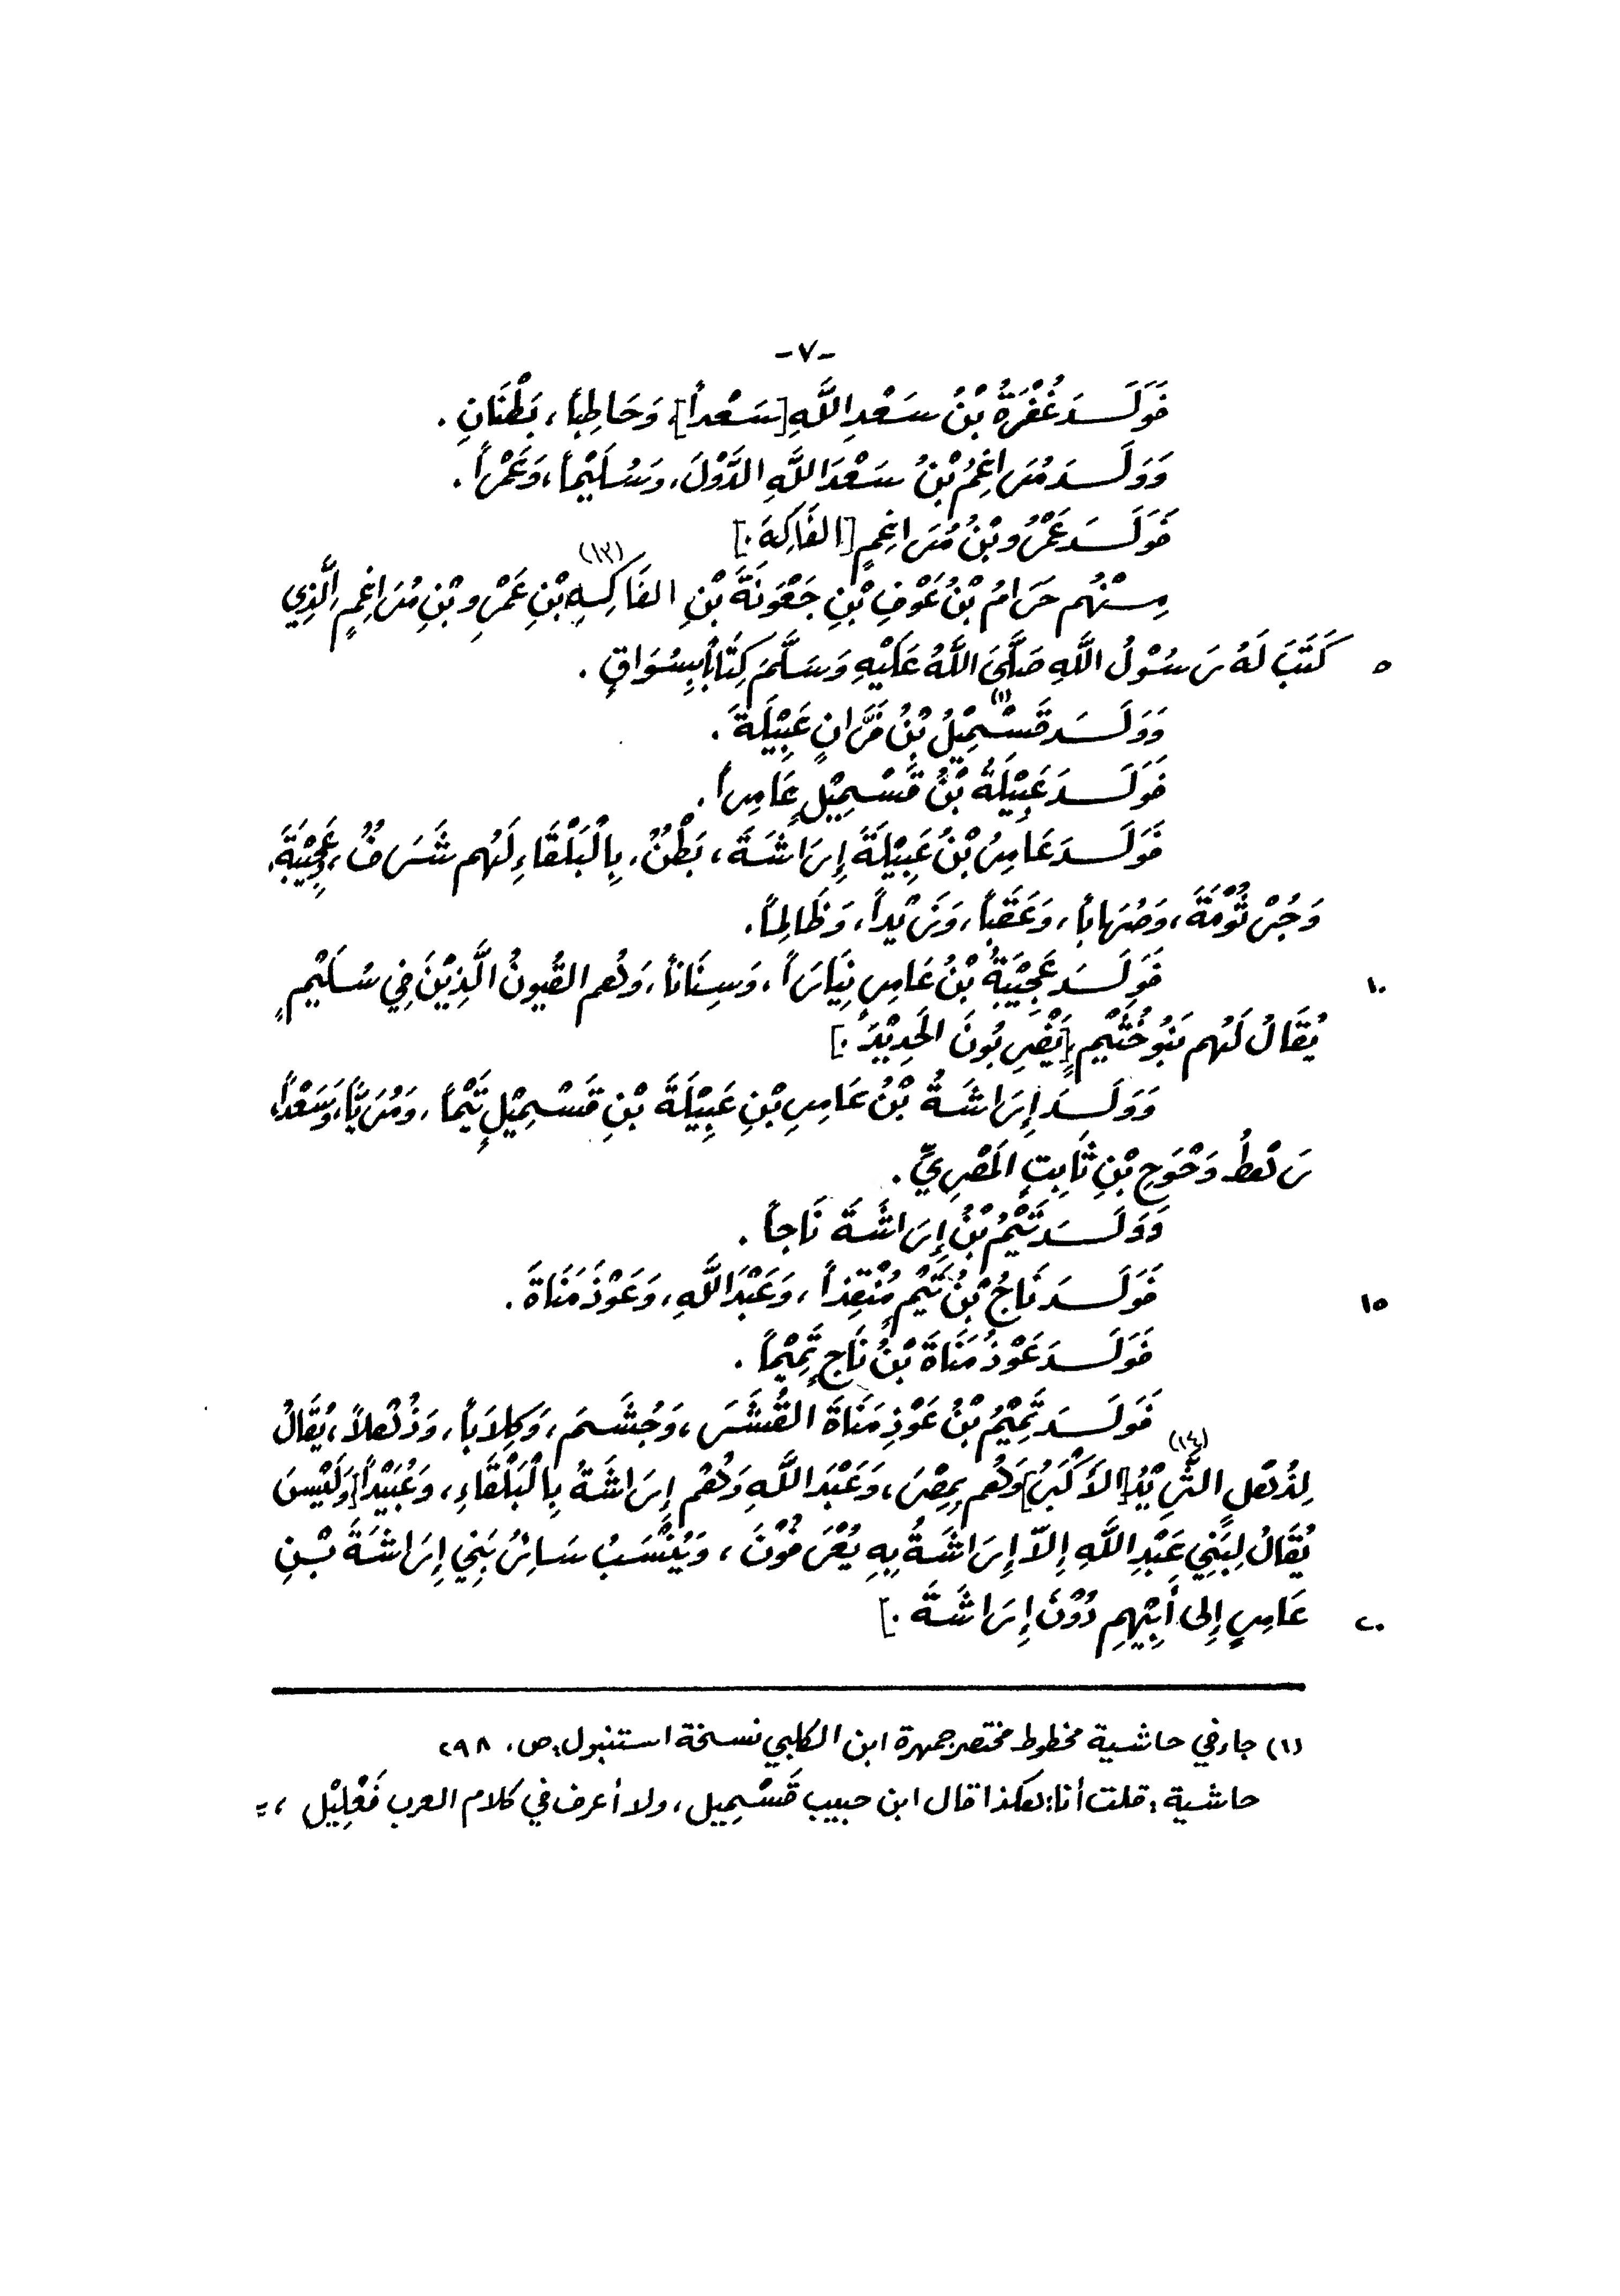 -٧-
فَوَلَدَ غُفْرَةُ بْنُ سَعْدِ اللَّهِ [سَعْداً]، وَحَاطِباً، بَطْنَانِ.
وَوَلَدَ مُرَاغِمُ بْنُ سَعْدَ اللَّهِ الدَّوْلَ، وَسُلَيْماً، وَعَمْراً.
فَوَلَدَ عَمْرُو بْنُ مُرَاغِمٍ [الفَاكِهَ.]
مِنْهُم حَرَامُ بْنُ عَوْفِ بْنِ جَعْوَنَةَ بْنِ الفَاكِهِ بْنِ عَمْرِو بْنِ مُرَاغِمٍ(١٣) الَّذِي
٥ كَتَبَ لَهُ رَسُوْلُ اللَّهِ صَلَّى اللَّهُ عَلَيْهِ وَسَلَّمَ كِتَاباً بِسُوَاقٍ.
وَوَلَدَ قَسْمِيْلُ(١) بْنُ فَرَّانٍ عَبِيْلَةَ.
فَوَلَدَ عَبِيْلَةُ بْنُ قَسْمِيْلٍ عَامِراً.
فَوَلَدَ عَامِرُ بْنُ عَبِيْلَةَ إِرَاشَةَ، بَطْنٌ، بِالْبَلْقَاءِ لَهُم شَرَفٌ، وَعَجِيْبَةَ،
وَجُرْثُوْمَةَ، وَصُهَاباً، وَعَقَباً، وَزَيْداً، وَظَالِماً.
١٠ فَوَلَدَ عَجِيْبَةُ بْنُ عَامِرٍ نِيَاراً، وَسِنَاناً، وَهُم القُيونُ الَّذِيْنَ فِي سُلَيْمٍ
يُقَالُ لَهُم بَنُو خُثَيْمٍ [يَضْرِبُونَ الحَدِيْدَ.]
وَوَلَدَ إِرَاشَةُ بْنُ عَامِرِ بْنِ عَبِيْلَةَ بْنِ قَسْمِيْلٍ تَيْماً، وَمُرَيَّاً، وَسَعْداً،
رَهْطُ وَحْوَحِ بْنِ ثَابِتٍ المَصْرِيِّ.
وَوَلَدَ تَيْمُ بْنُ إِرَاشَةَ نَاجاً.
١٥ فَوَلَدَ نَاجُ بْنُ تَيْمٍ مُنْقِذاً، وَعَبْدَ اللَّهِ، وَعَوْذَ مَنَاةَ.
فَوَلَدَ عَوْذُ مَنَاةَ بْنُ نَاجٍ تَمِيْماً.
فَوَلَدَ تَمِيْمُ بْنُ عَوْذِ مَنَاةَ القُشَرَ، وَجُشَمَ، وَكِلَاباً، وَذُهْلاً، يُقَالُ
لِذُهْلٍ الثَّرِيْدُ(١٤) [الأَكْبَرُ] وَهُم بِمِصْرَ، وَعَبْدَ اللَّهِ وَهُمْ إِرَاشَةُ بِالْبَلْقَاءِ، وَعُبَيْداً [وَلَيْسَ
يُقَالُ لِبَنِي عَبْدِ اللَّهِ إِلاّ إِرَاشَةُ بِهِ يُعْرَفُوْنَ، وَيُنْسَبُ سَائِرُ بَنِي إِرَاشَةَ بْنِ
٢٠ عَامِرٍ إِلى أَبِيْهِمِ دُوْنَ إِرَاشَةَ.]
(١) جاء في حاشية مخطوط مختصر جمهرة ابن الكلبي نسخة استنبول: ص، ٢٩٨
حاشية: قلت أنا: هكذا قال ابن حبيب قَسْمِيل، ولا أعرف في كلام العرب فَعْلِيْل، =